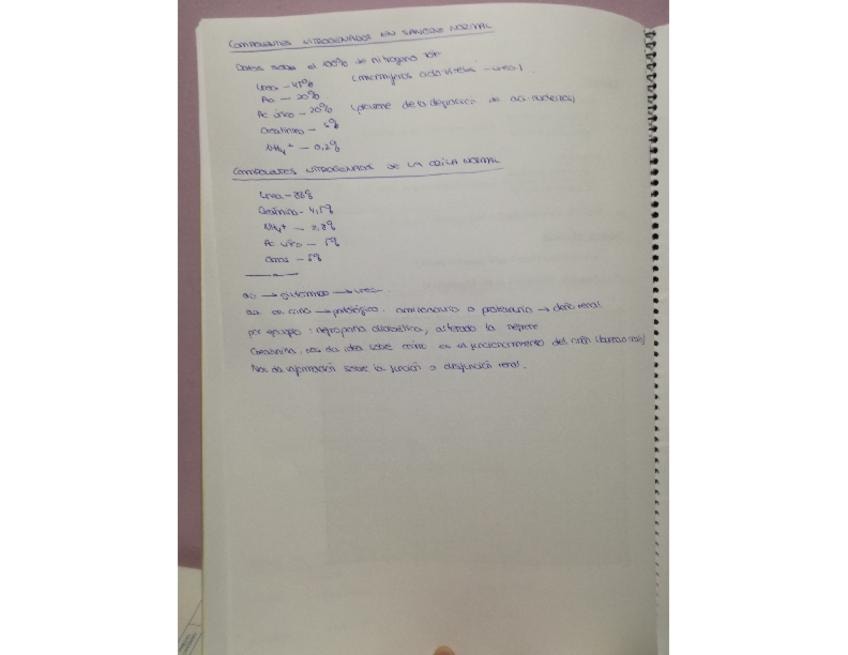 COMPONENTES NITROGENADOS EN SANGRE NORMAL
Datos sobre el 100% de nitrógeno total
Urea - 45%
Aa - 20%
Ac úrico - 20% (proviene de la degradación de ac. nucleicos)
Creatinina - 5%
NH4+ - 0,2%
COMPONENTES NITROGENADOS DE LA ORINA NORMAL
Urea - 86%
Creatinina - 4,5%
NH4+ - 2,8%
Ac úrico - 
Otros - 5%
aa → glutamato → urea.
aa en orina → patológico. aminoaciduria o proteinuria → daño renal
por ejemplo: nefropatía diabética, alterado la
Creatinina: nos da idea sobre cómo es el funcionamiento del riñón (bueno o malo)
Nos da información sobre la función o disfunción renal.